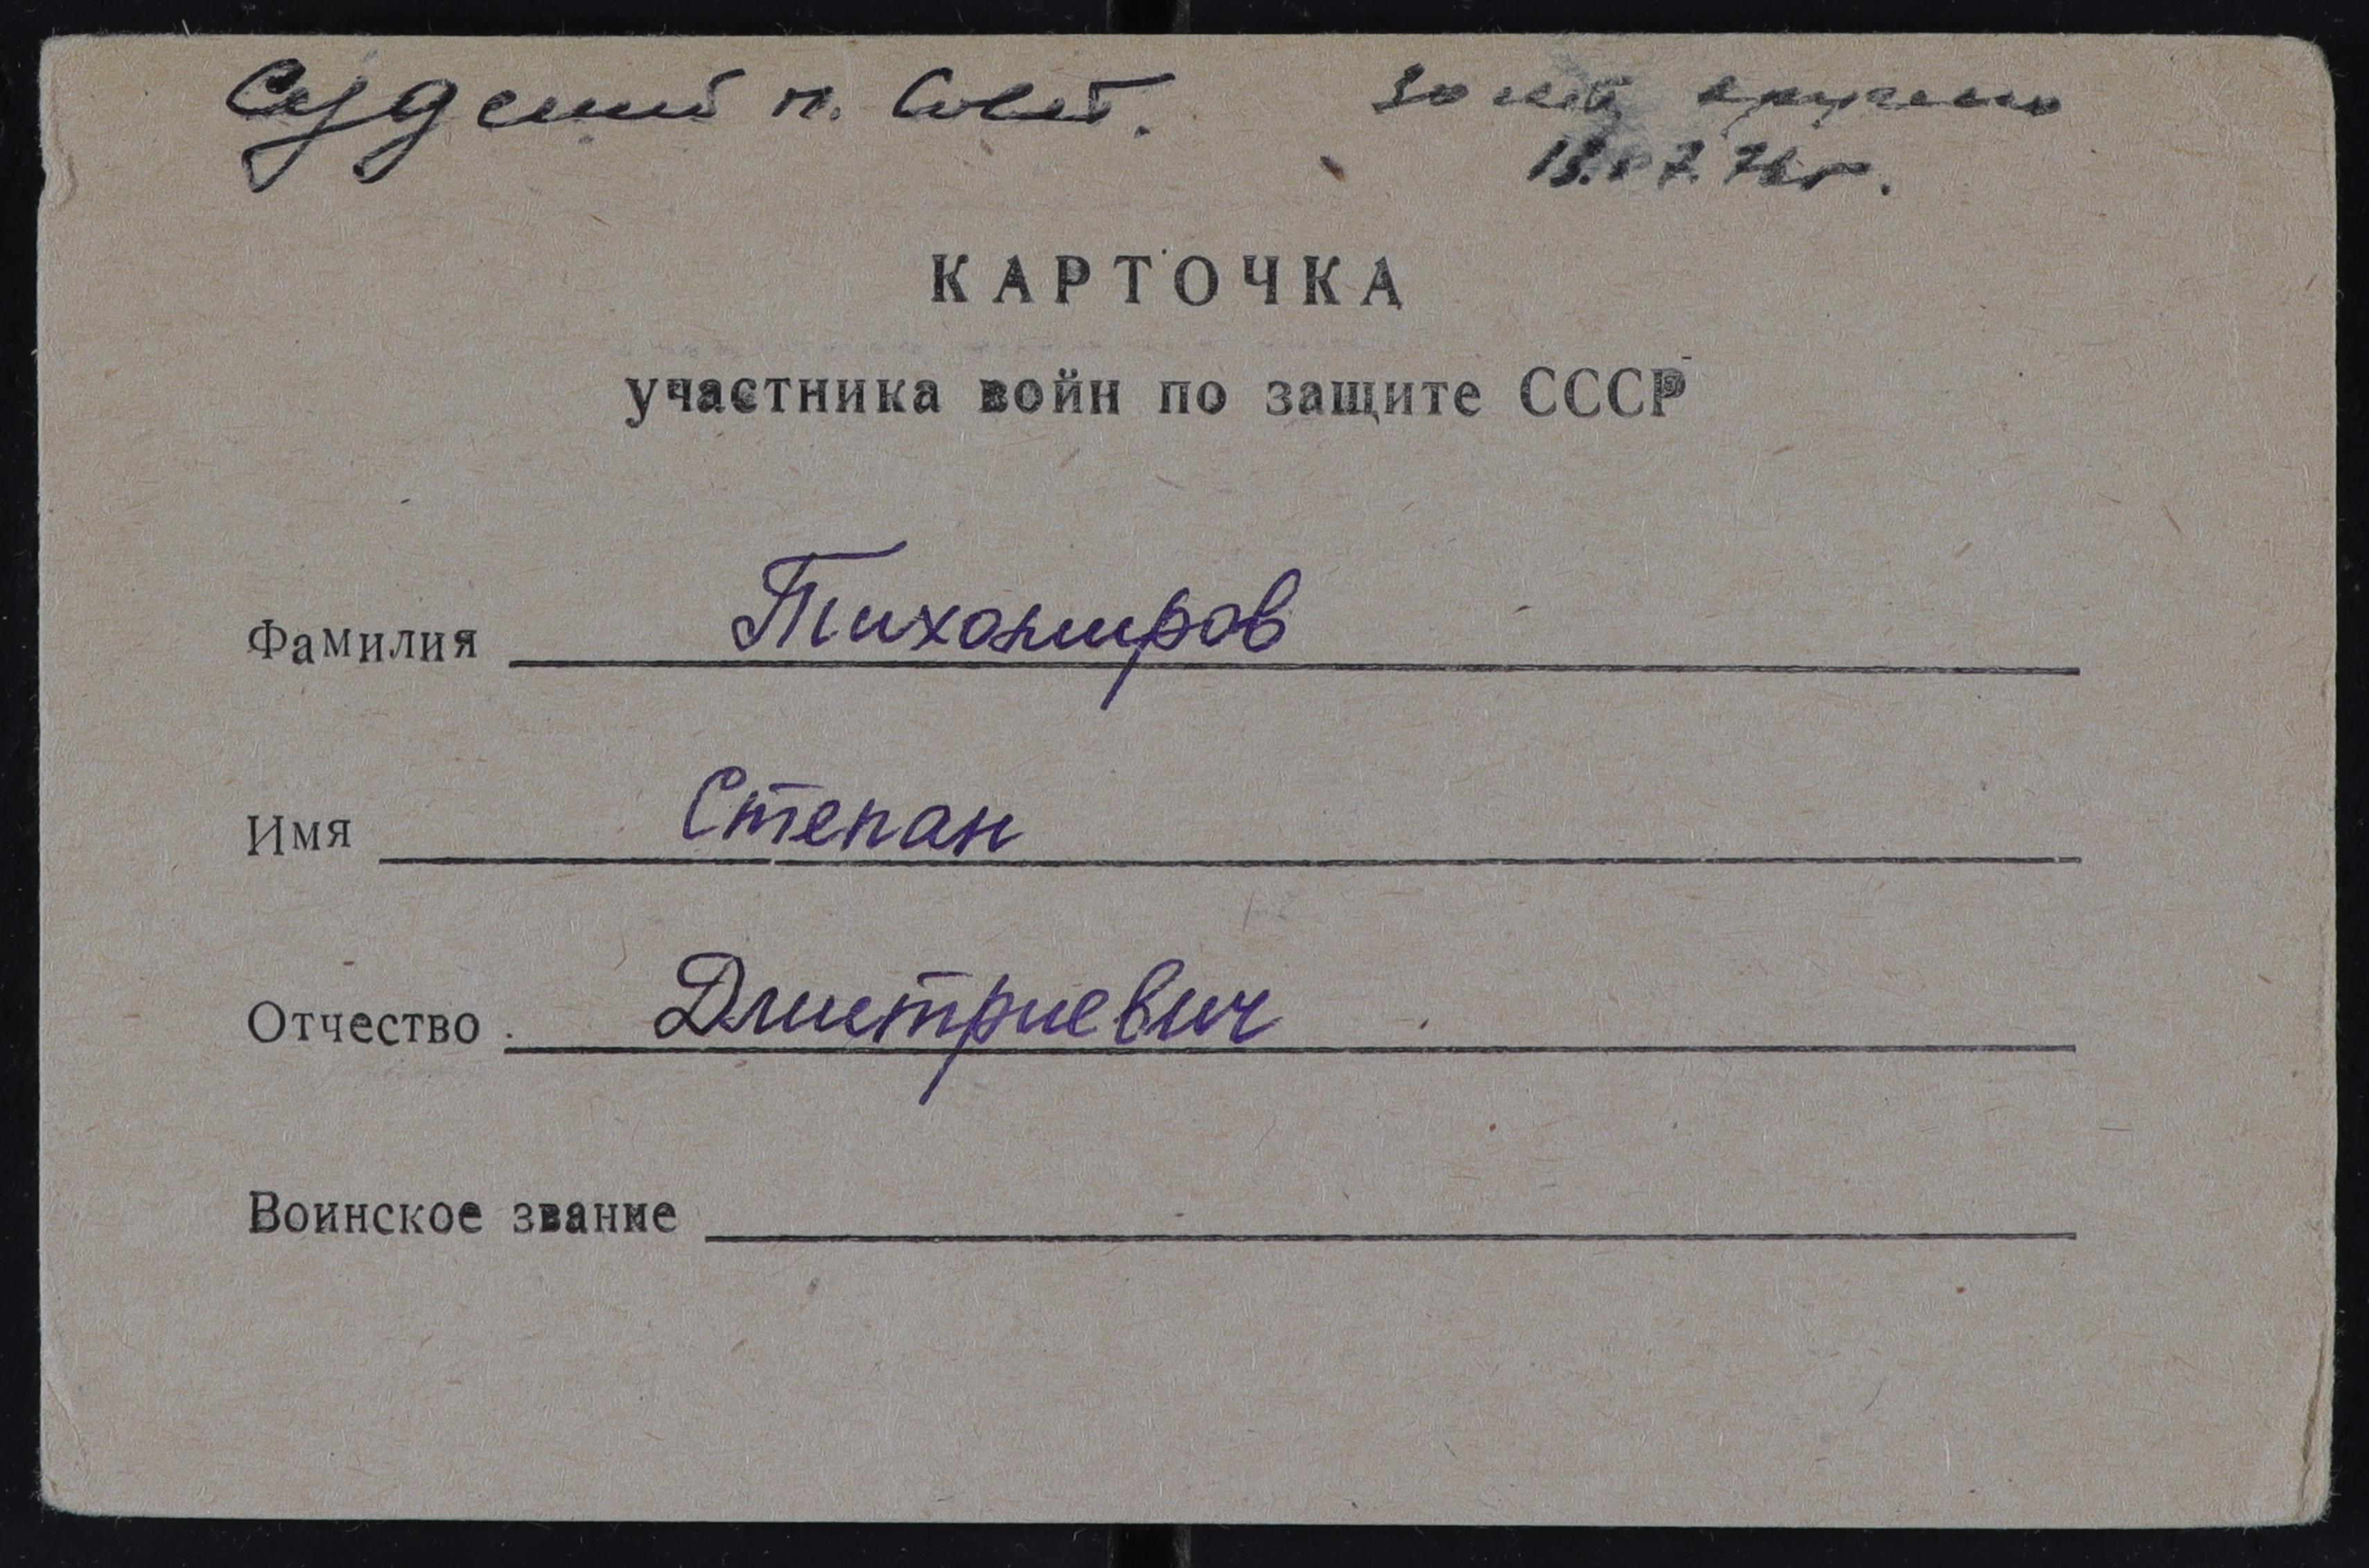 Судский п. Совет. 30 лет вручено
13.07.76 г.
КАРТОЧКА
участника войн по защите СССР
Фамилия Тихомиров
Имя Степан
Отчество Дмитриевич
Воинское звание